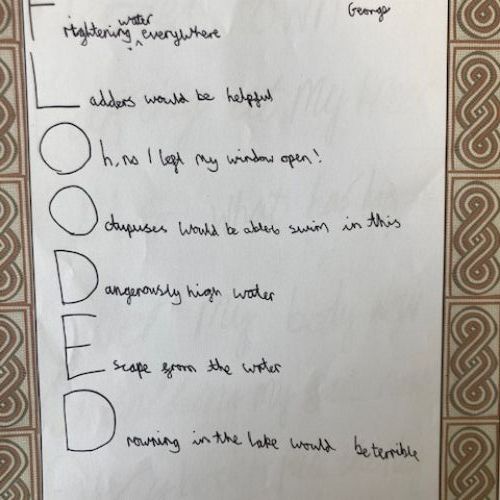 George
Frightening water everywhere
Ladders would be helpful
Oh, no I left my window open!
Octupuses would be able to swim in this
Dangerously high water
Escape from the water
Drowning in the lake would be terrible